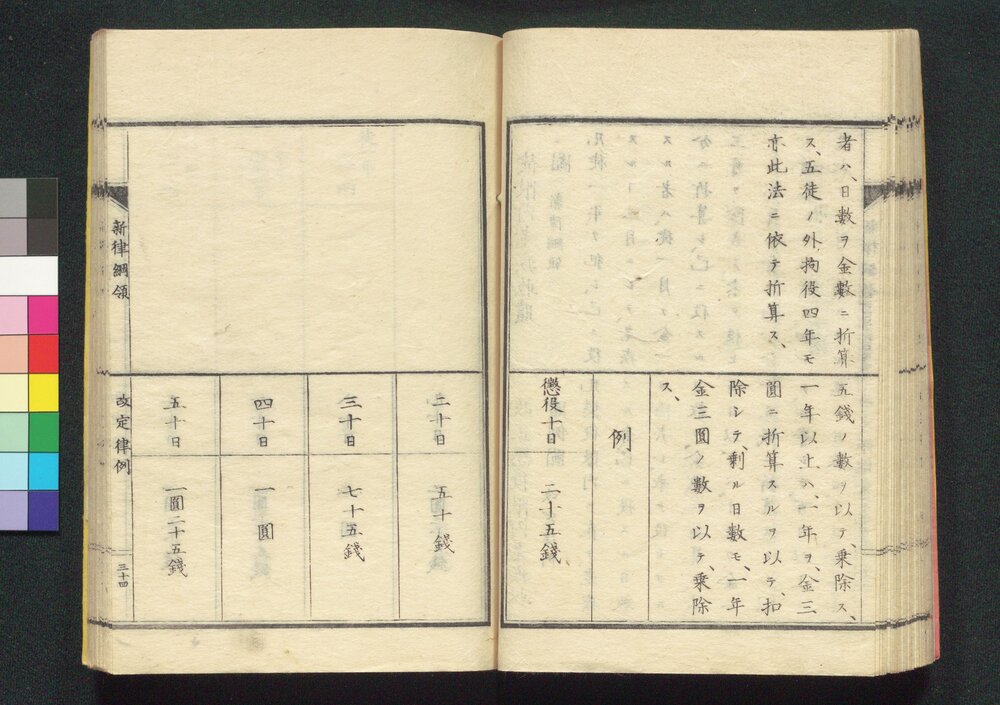 者ハ、日數ヲ金數ニ折算
ス、五徒ノ外、拘役四年モ
亦此法ニ依テ折算ス、
五錢ノ數ヲ以テ、乘除ス、
一年以上ハ、一年ヲ、金三
圓ニ折算スルヲ以テ、扣
除シテ、剰ル日數モ、一年
金三圓ノ數ヲ以テ、乘除
ス、
例
懲役十日 二十五錢
二十日 五十錢
三十日 七十五錢
四十日 一圓
五十日 一圓二十五錢
新律綱領 改定律例 三十四